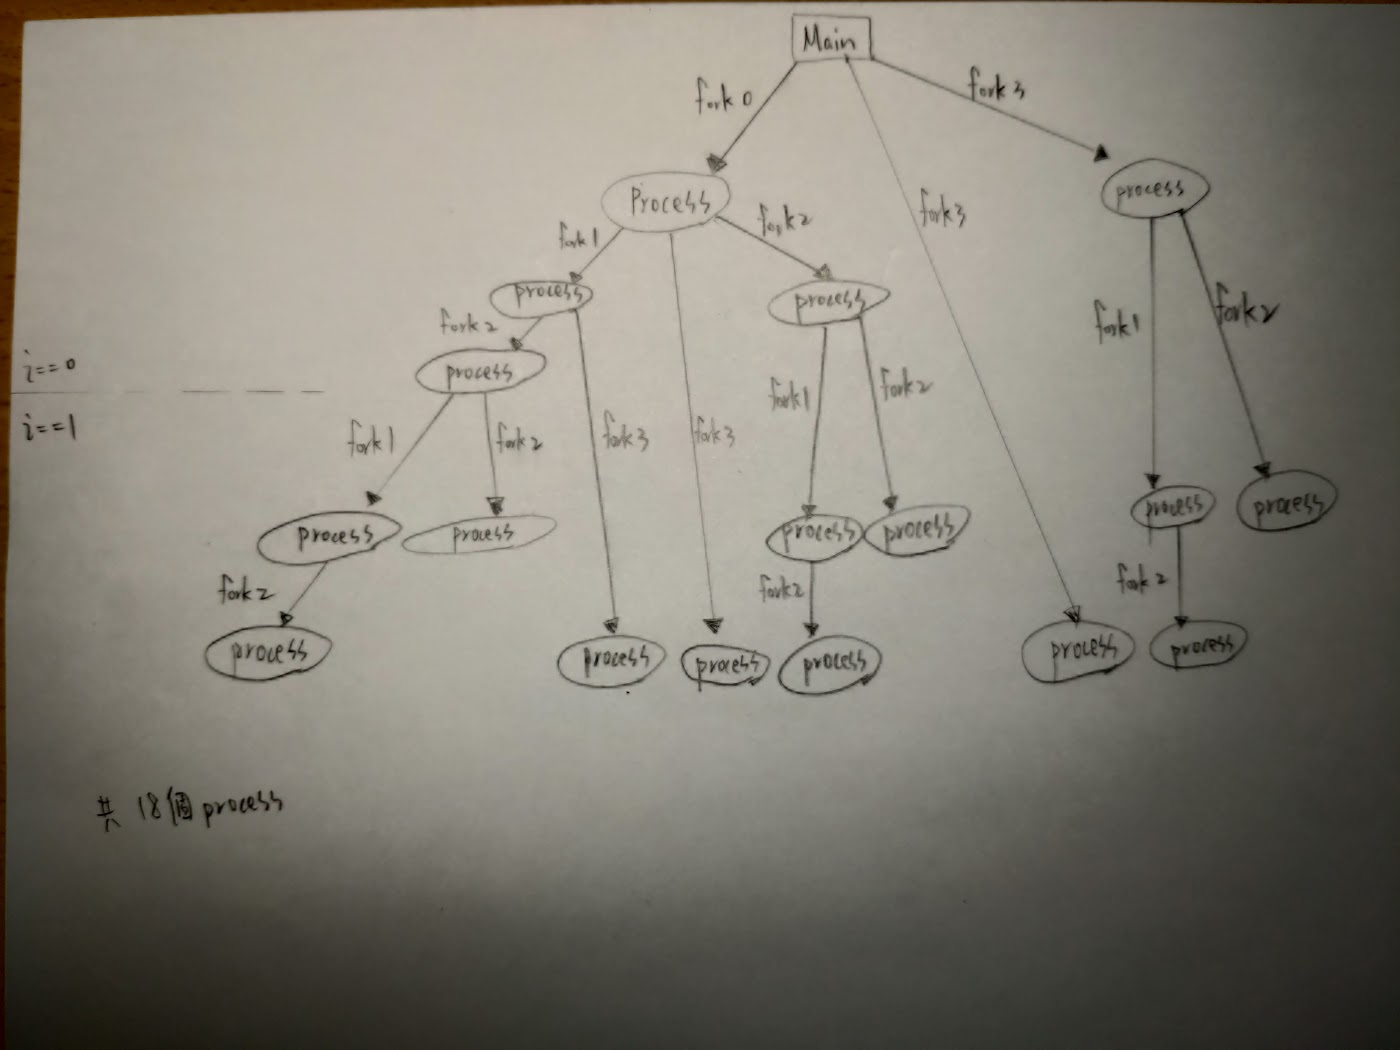 Main
fork 0
fork 3
process
Process
fork 3
fork 1
fork 2
process
process
fork 2
fork 1
fork 2
i==0
process
fork1
fork2
i==1
fork1
fork 2
fork 3
fork 3
process
process
process
process
process
process
fork 2
fork2
fork 2
process
process
process
process
process
process
共 18個 process